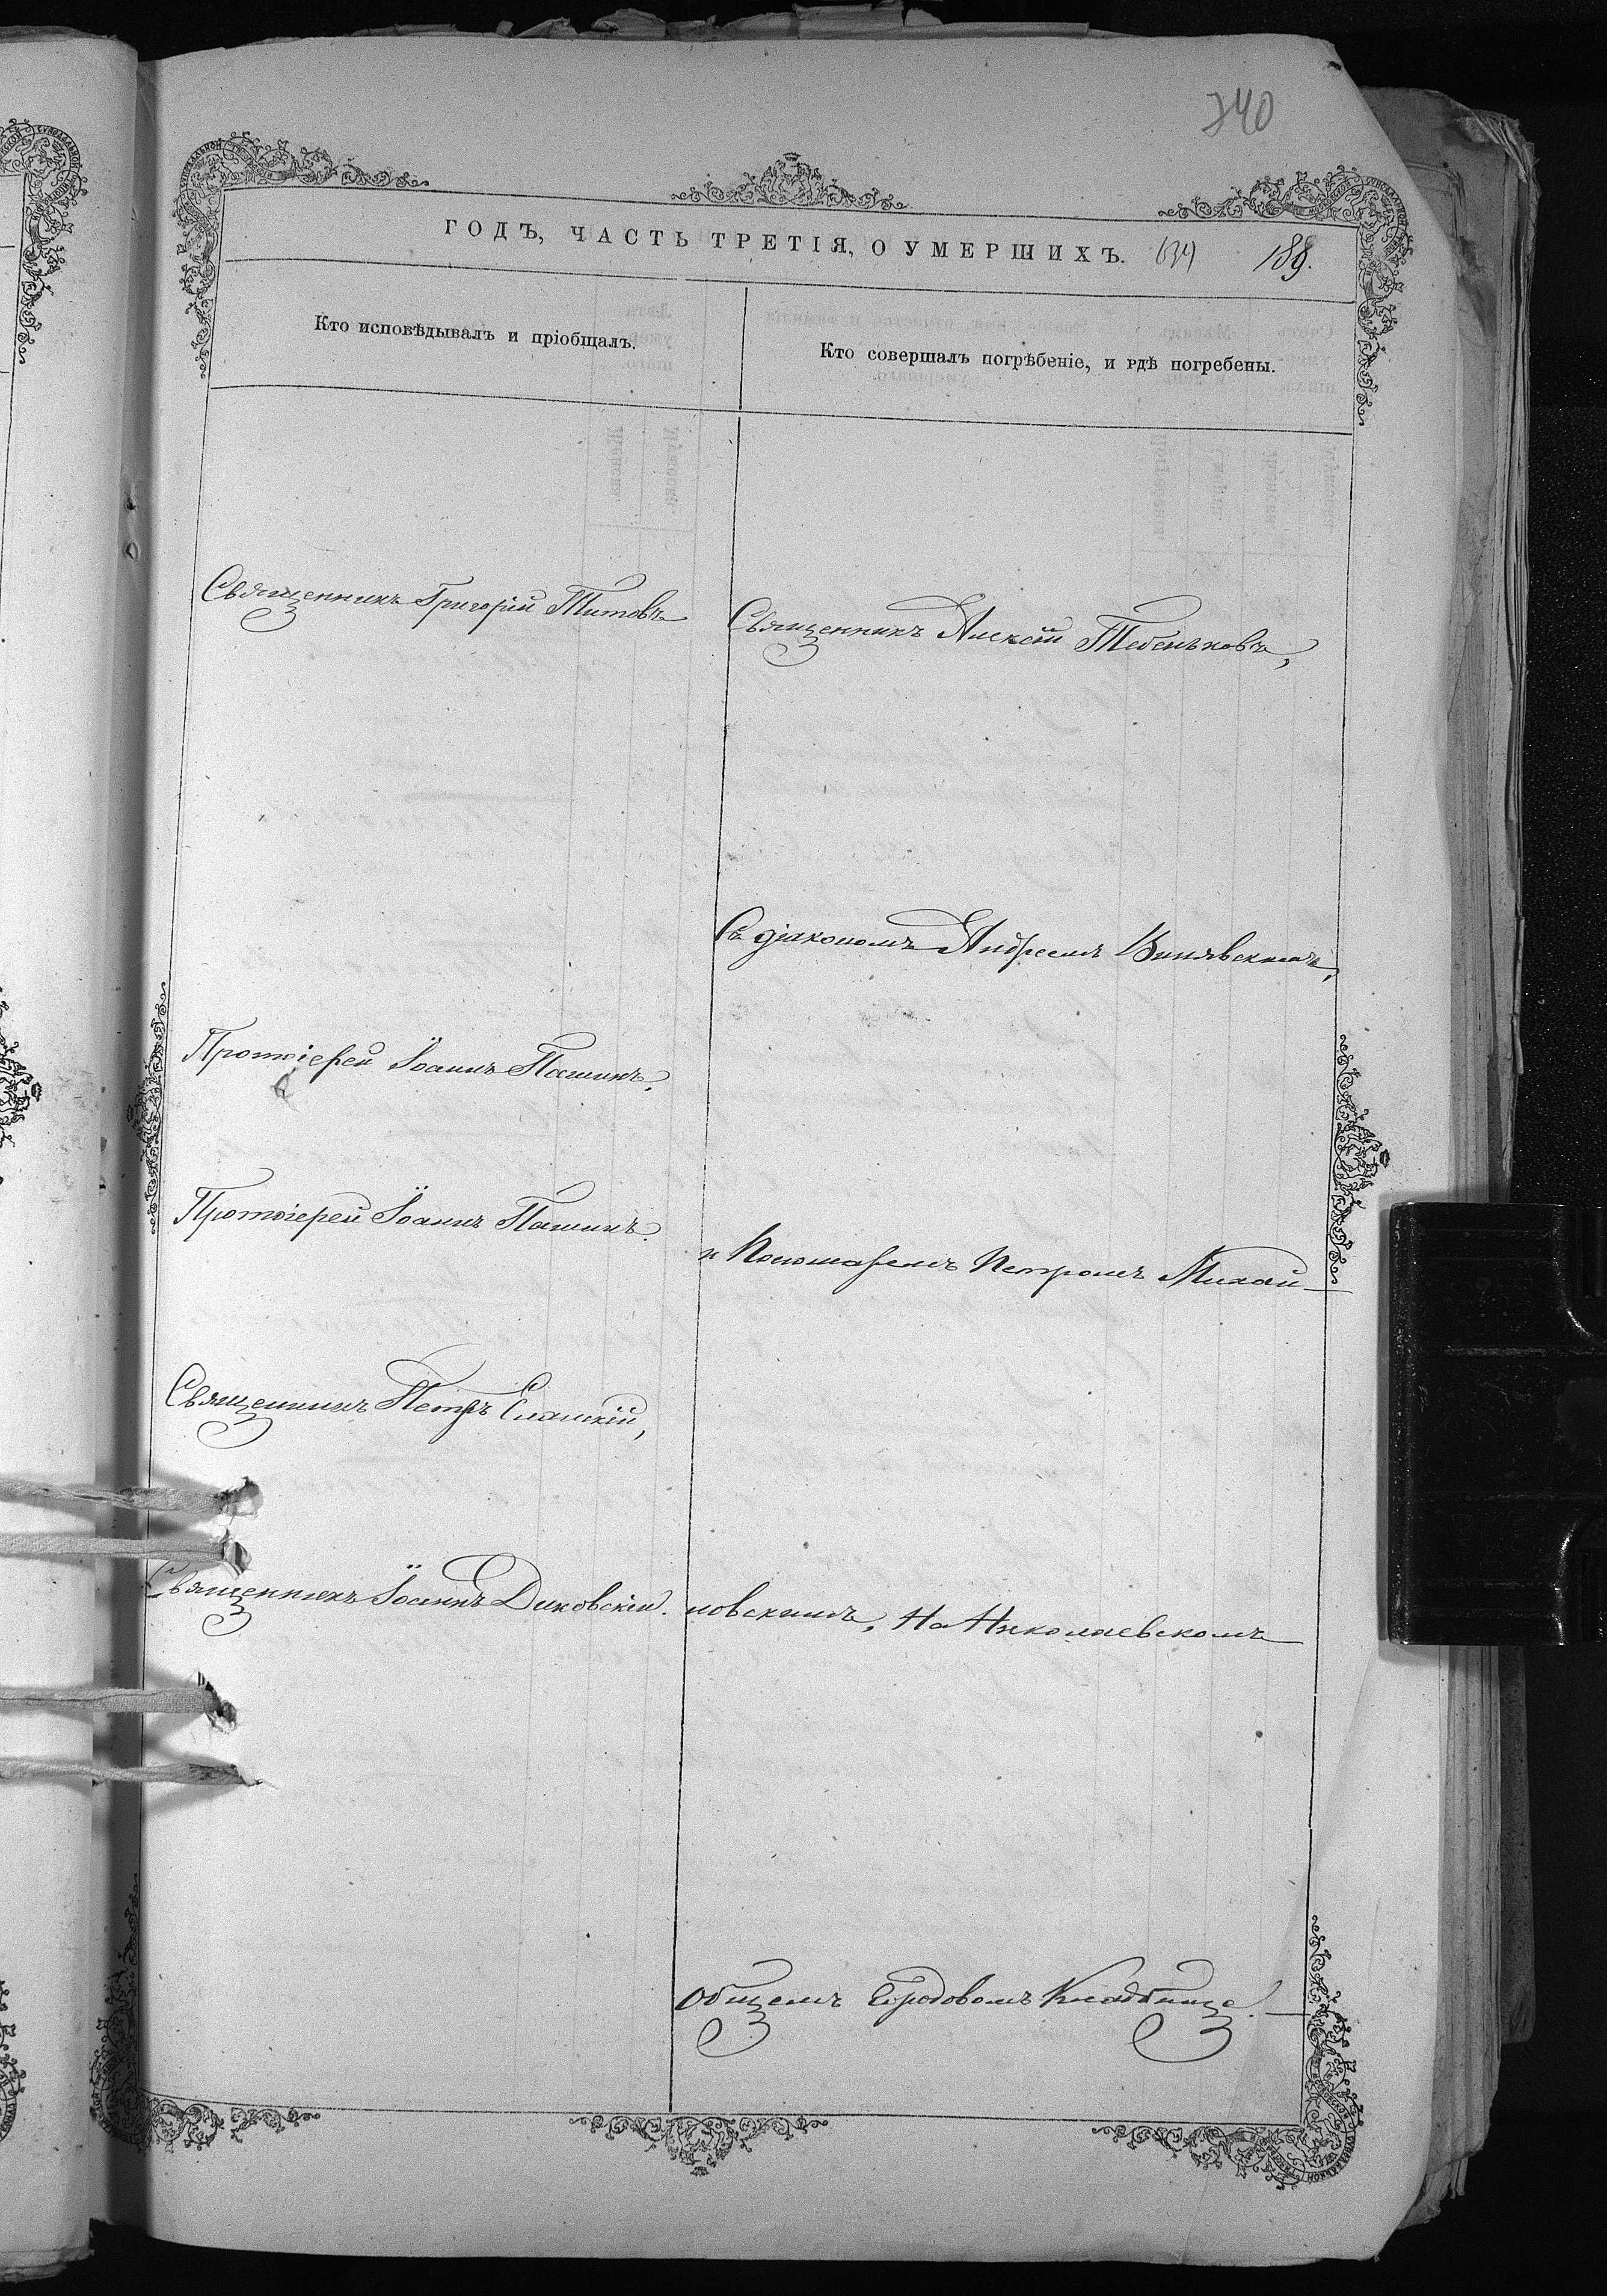 740
ГОДЪ, ЧАСТЬ ТРЕТІЯ, О УМЕРШИХЪ.
189.
Кто исповѣдывалъ и пріобщалъ.
Кто совершалъ погрѣбеніе, и гдѣ погребены.
Священникъ Григорій Титовъ
Священникъ Алексій Тебеньковъ,
Съ діакономъ Андреемъ Винявскимъ,
Протоіерей Іоаннъ Пашинъ.
Протоіерей Іоаннъ Пашинъ.
и Пономаремъ Петромъ Михай
Священникъ Петръ Еланскій,
Священникъ Іоаннъ Диковскій.
ловскимъ, На Николаевскомъ
общемъ Городовомъ Кладбище.